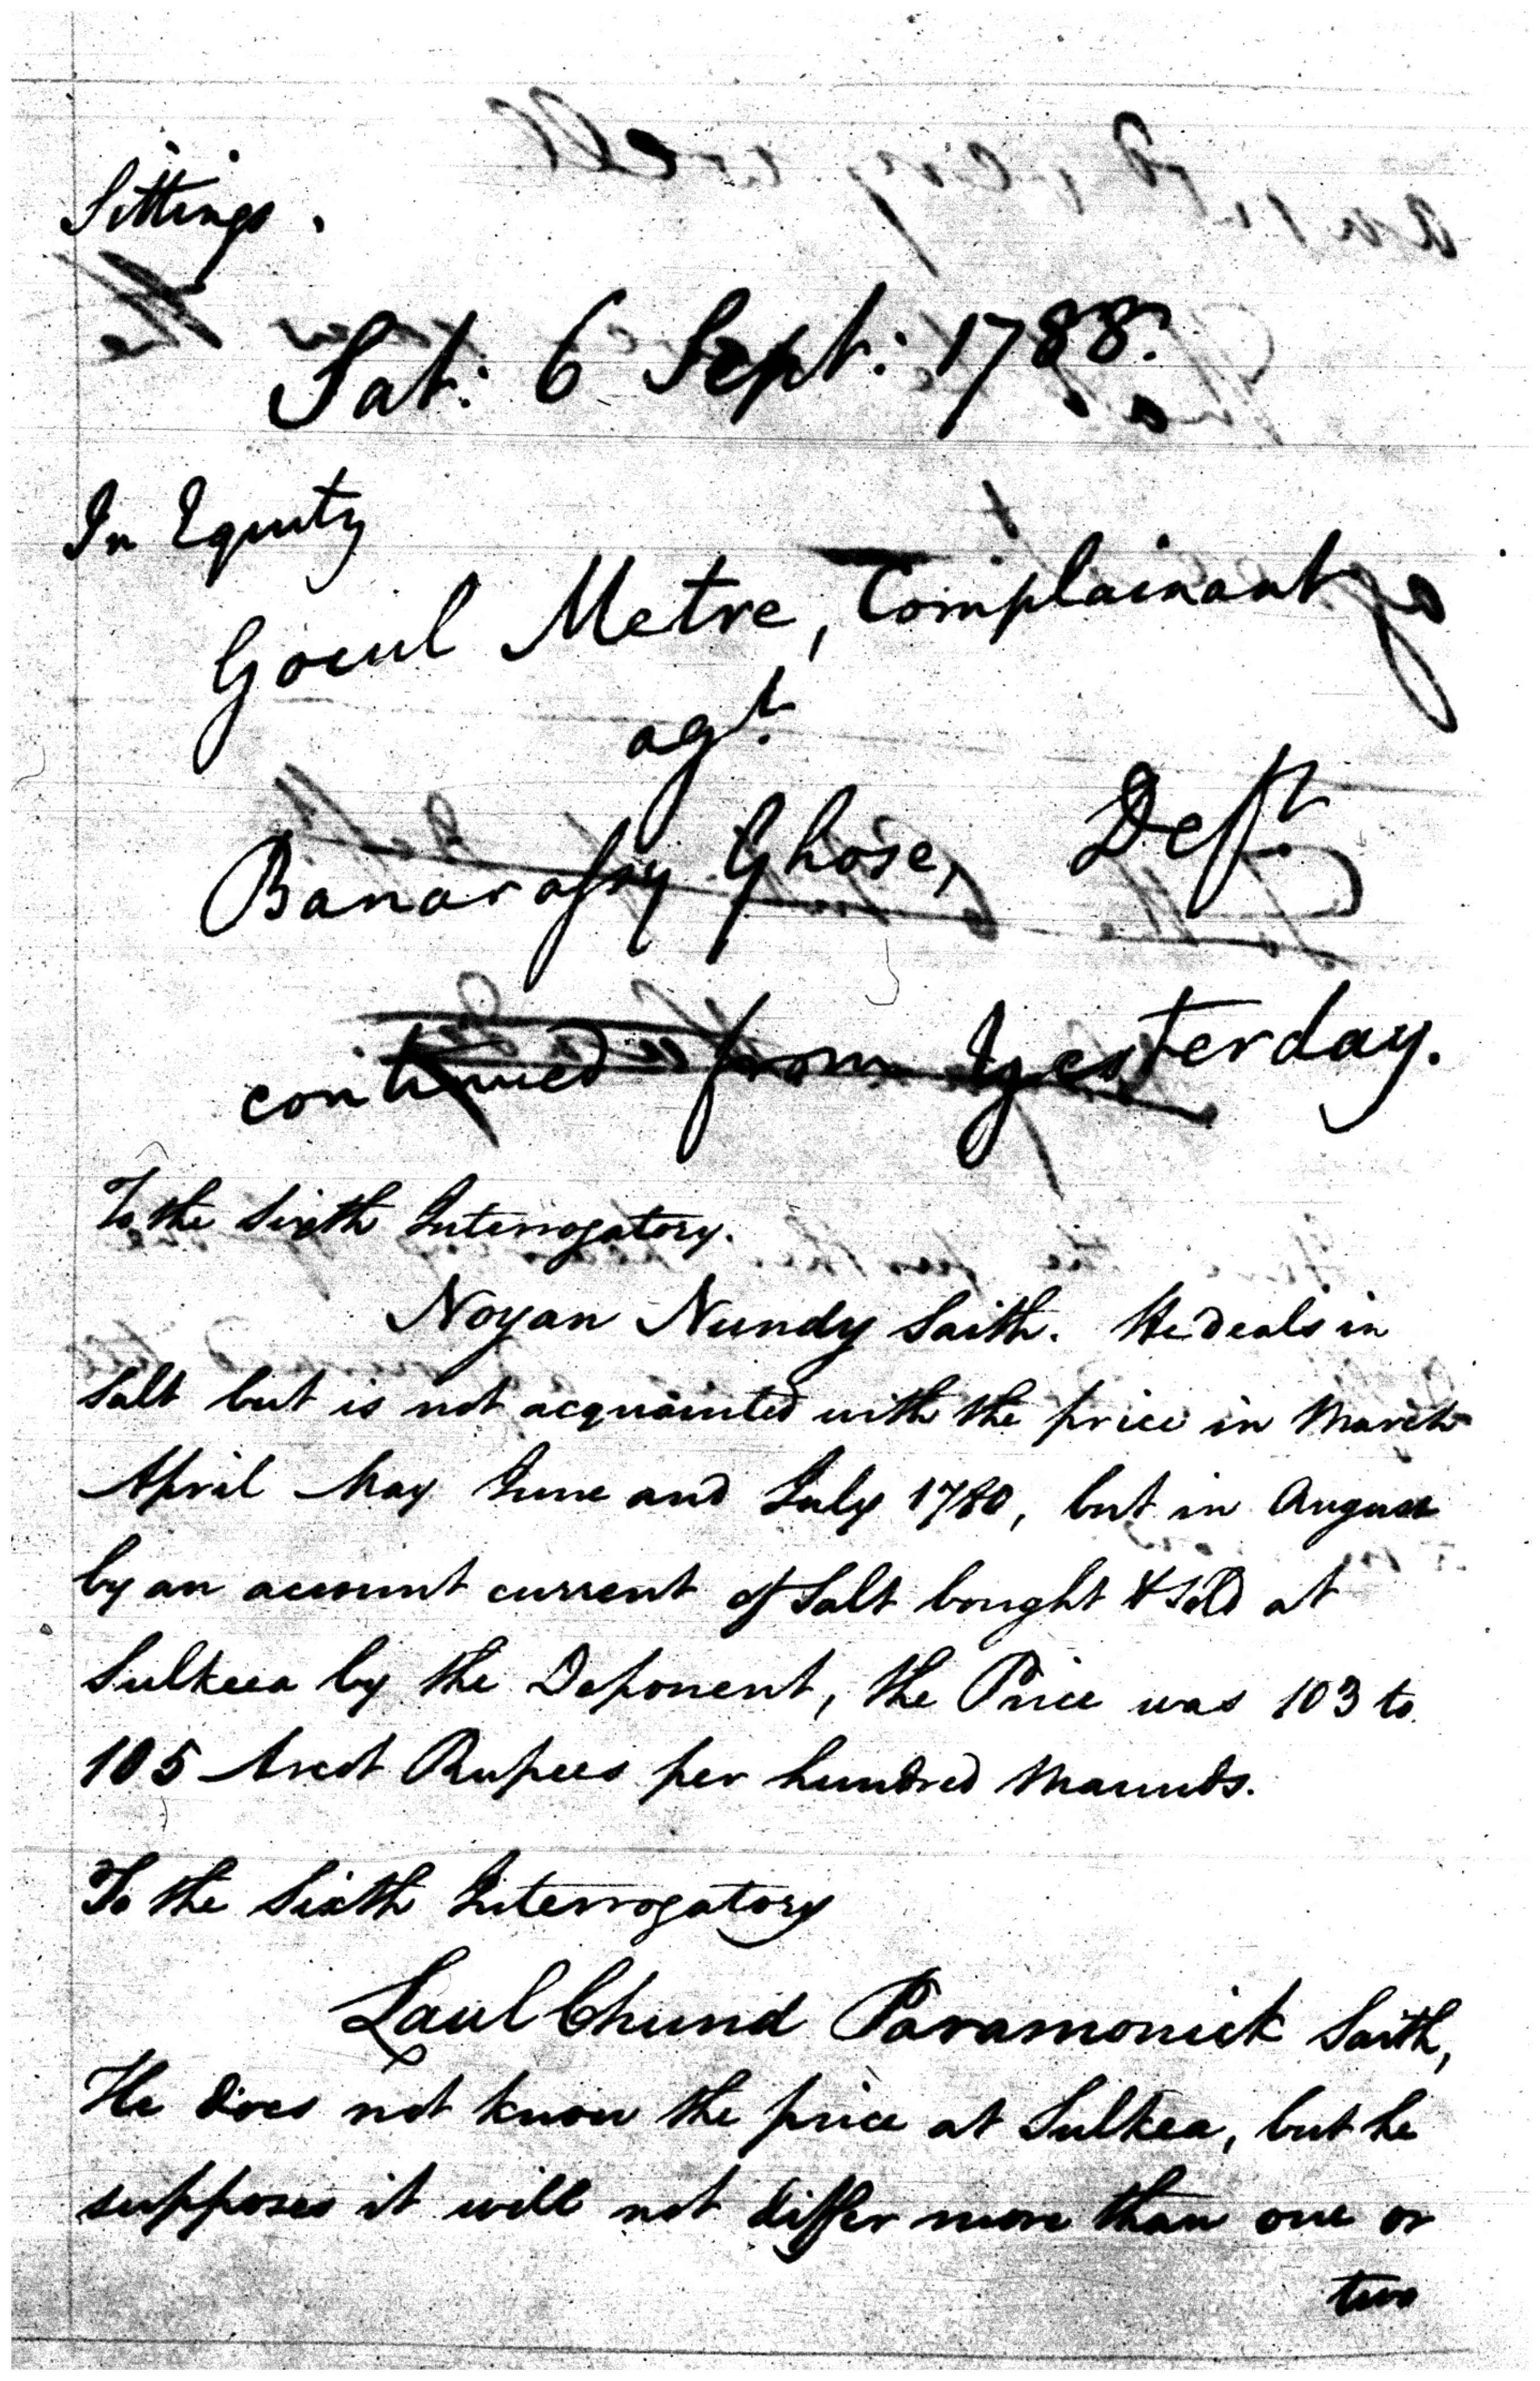 Sittings.
Sat: 6 Sept: 1788.
In Equity
Gocul Metre, Complainant
agt.
Banarassy Ghose, Deft.
continued from Yesterday.
To the Sixth Interrogatory.
Noyan Nundy Saith. He deals in
Salt but is not acquainted with the price in March
April May June and July 1780, but in August
by an account current of Salt bought & sold at
Sulkeea by the Deponent, the Price was 103 to
105 Arcot Rupees per hundred Maunds.
To the Sixth Interrogatory
Laul Chund Paramonick Saith,
He does not know the price at Sulkea, but he
supposes it will not differ more than one or
two